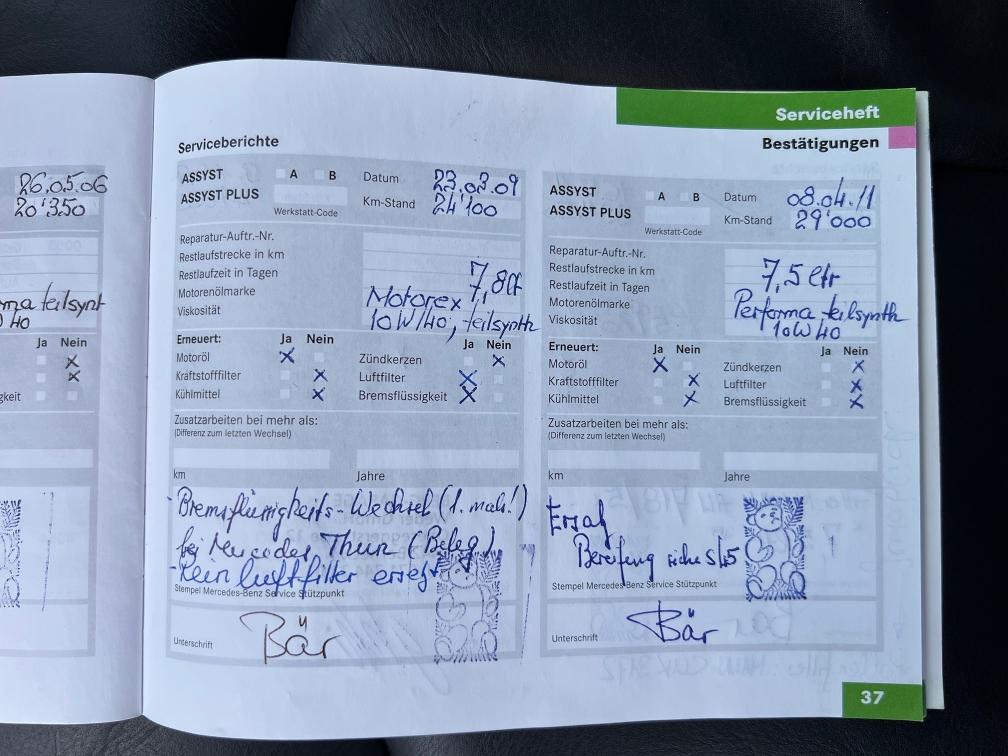 Serviceheft
Bestätigungen
Serviceberichte
26.05.06
20'350
teilsynt
40
Ja Nein
gkeit
ASSYST A B Datum 23.03.09
ASSYST PLUS Km-Stand 24'100
Werkstatt-Code
Reparatur-Auftr.-Nr.
Restlaufstrecke in km
Restlaufzeit in Tagen 7,8
Motorenölmarke Motorex
Viskosität 10W/40, teilsynth
Erneuert: Ja Nein Ja Nein
Motoröl X Zündkerzen X
Kraftstofffilter X Luftfilter X
Kühlmittel X Bremsflüssigkeit X
Zusatzarbeiten bei mehr als:
(Differenz zum letzten Wechsel)
km Jahre
- Bremsflüssigkeits-Wechsel (1. mal!)
bei Mercedes Thun (Beleg)
luftfilter
Stempel Mercedes-Benz Service Stützpunkt
Unterschrift Bär
ASSYST A B Datum 08.04.11
ASSYST PLUS Km-Stand 29'000
Werkstatt-Code
Reparatur-Auftr.-Nr.
Restlaufstrecke in km 7,5 ltr
Restlaufzeit in Tagen
Motorenölmarke Performa teilsynth
Viskosität 10W40
Erneuert: Ja Nein Ja Nein
Motoröl X Zündkerzen X
Kraftstofffilter X Luftfilter X
Kühlmittel X Bremsflüssigkeit X
Zusatzarbeiten bei mehr als:
(Differenz zum letzten Wechsel)
km Jahre
Ersatz
Bereifung siehe S/45
Stempel Mercedes-Benz Service Stützpunkt
Unterschrift Bär
37